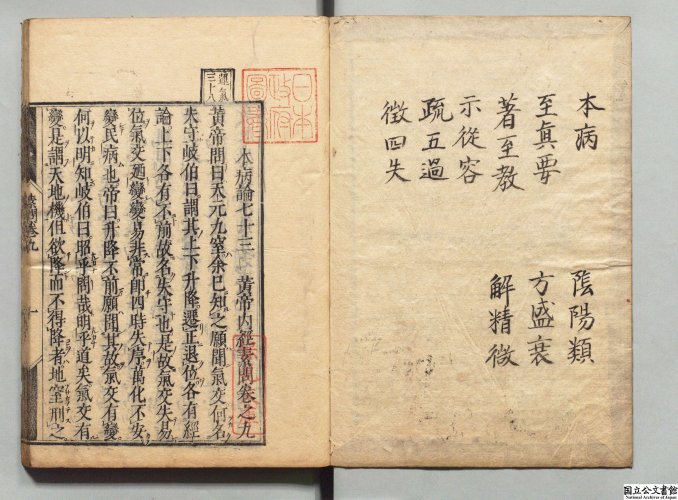 本病
至真要
著至教
示従容
疏五過
徴四失
陰陽類
方盛衰
解精微
日本
政府
圖書
運氣
三十八
本病論七十三 黄帝内經素問卷之九
黄帝問曰天元九窒余已知之願聞氣交何名
失守岐伯曰謂其上下升降遷正退位各有經
論上下各有不前故名失守也是故氣交失易
位氣交迺變變易非常即四時失序萬化不安
變民病也帝曰升降不前願聞其故氣交有變
何以明知岐伯曰昭乎問哉明乎道矣氣交有
變是謂天地機但欲降而不得降者地窒刑之
素問卷九
一
国立公文書館
National Archives of Japan